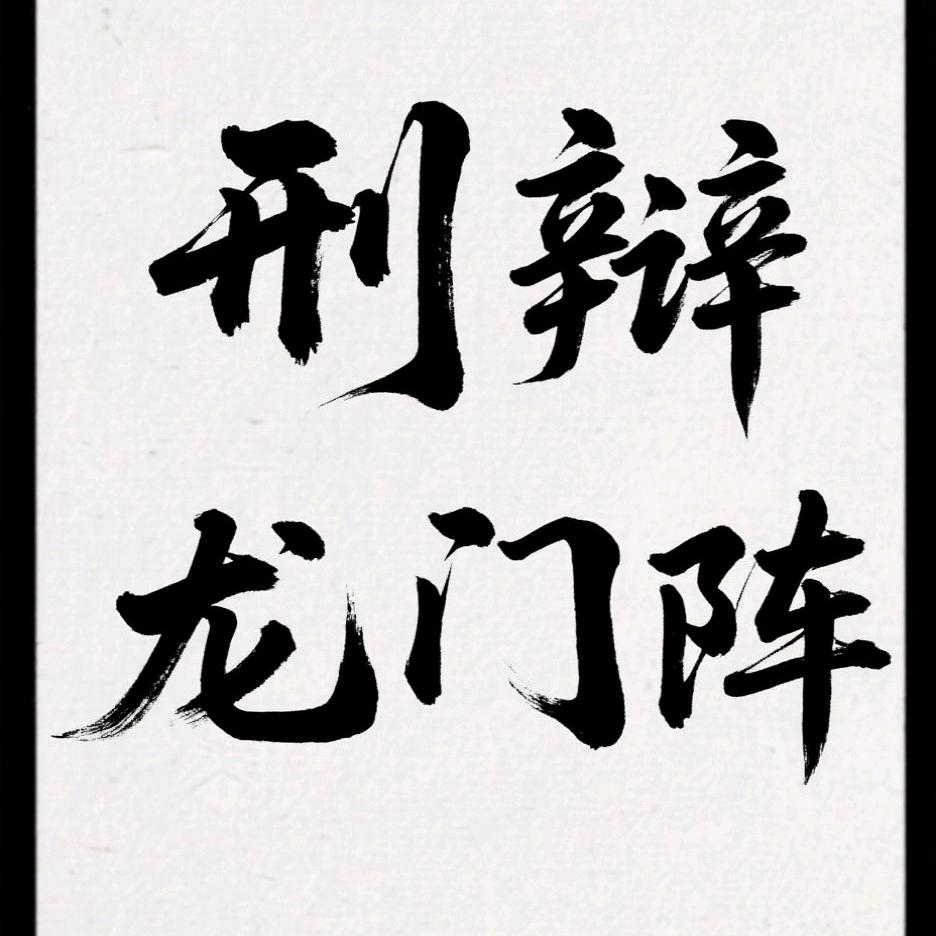 刑辩
龙门阵